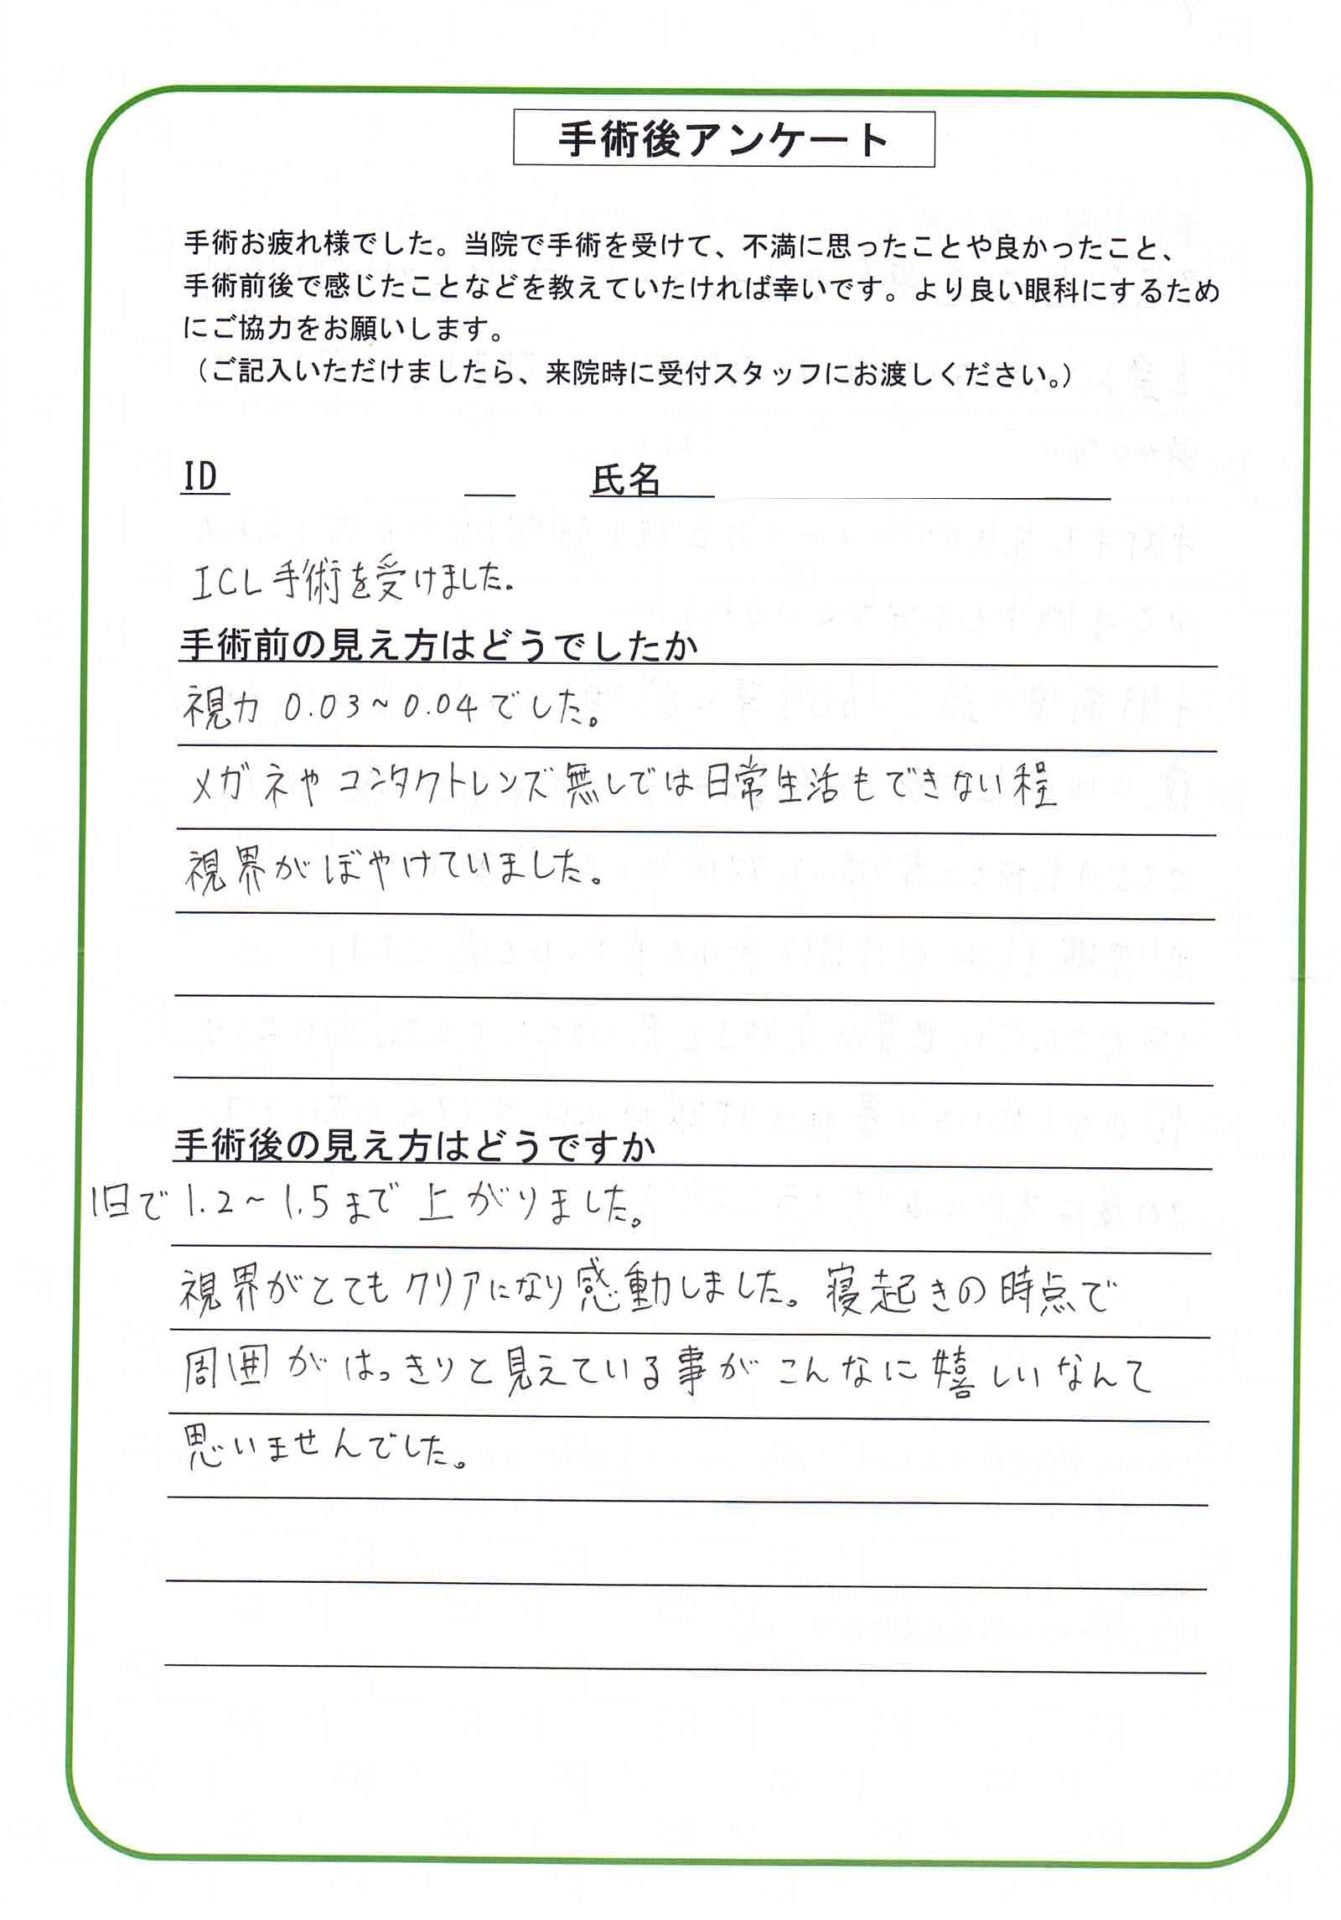 手術後アンケート
手術お疲れ様でした。当院で手術を受けて、不満に思ったことや良かったこと、
手術前後で感じたことなどを教えていたければ幸いです。より良い眼科にするため
にご協力をお願いします。
（ご記入いただけましたら、来院時に受付スタッフにお渡しください。）
ID 氏名
ICL手術を受けました.
手術前の見え方はどうでしたか
視力 0.03~0.04でした。
メガネやコンタクトレンズ無しでは日常生活もできない程
視界がぼやけていました。
手術後の見え方はどうですか
1日で 1.2~1.5まで上がりました。
視界がとてもクリアになり感動しました。寝起きの時点で
周囲がはっきりと見えている事がこんなに嬉しいなんて
思いませんでした。